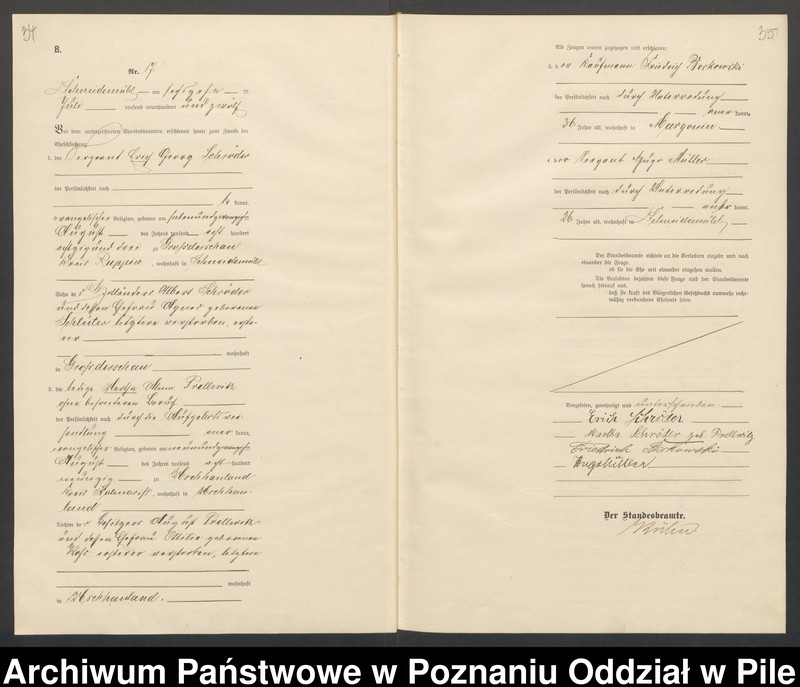 34
B.
Nr. 17
Schneidemühl, am sechszehn ten
Juli tausend neunhundert und zwölf
Vor dem unterzeichneten Standesbeamten erschienen heute zum Zwecke der
Eheschließung:
1. der Sergeant Erich Georg Schröder
der Persönlichkeit nach
be kannt,
evangelischer Religion, geboren am siebenundzwanzigsten
August des Jahres tausend acht hundert
achtzig und drei zu Großderschau
Kreis Ruppin, wohnhaft in Schneidemühl
Sohn des Albert Schröder
und dessen Ehefrau Agnes geborenen
Schlüter letztere verstorben, erste-
rer
wohnhaft
in Großderschau
2. die ledige Martha Anna Prellwitz
ohne besonderen Beruf
der Persönlichkeit nach durch die Aufgebotsver-
handlung aner kannt,
evangelischer Religion, geboren am neunundzwanzigsten
August des Jahres tausend acht hundert
neunzig zu
Kreis Kolmar, wohnhaft in
land
Tochter des Besitzers August Prellwitz
und dessen Ehefrau Ottilie geborenen
ersterer verstorben, letztere
wohnhaft
in
35
Als Zeugen waren zugezogen und erschienen:
3. der Kaufmann Friedrich Borkowski
der Persönlichkeit nach durch Unterredung
aner kannt,
36 Jahre alt, wohnhaft in Margonin
4. der Sergeant Hugo Müller
der Persönlichkeit nach durch Unterredung
aner kannt,
26 Jahre alt, wohnhaft in Schneidemühl,
Der Standesbeamte richtete an die Verlobten einzeln und nach
einander die Frage:
ob sie die Ehe mit einander eingehen wollen.
Die Verlobten bejahten diese Frage und der Standesbeamte
sprach hierauf aus,
daß sie kraft des Bürgerlichen Gesetzbuchs nunmehr recht-
mäßig verbundene Eheleute seien.
Vorgelesen, genehmigt und unterschrieben
Erich Schröder
Martha Schröder geb. Prellwitz
Friedrich Borkowski
Hugo Müller
Der Standesbeamte.
Archiwum Państwowe w Poznaniu Oddział w Pile